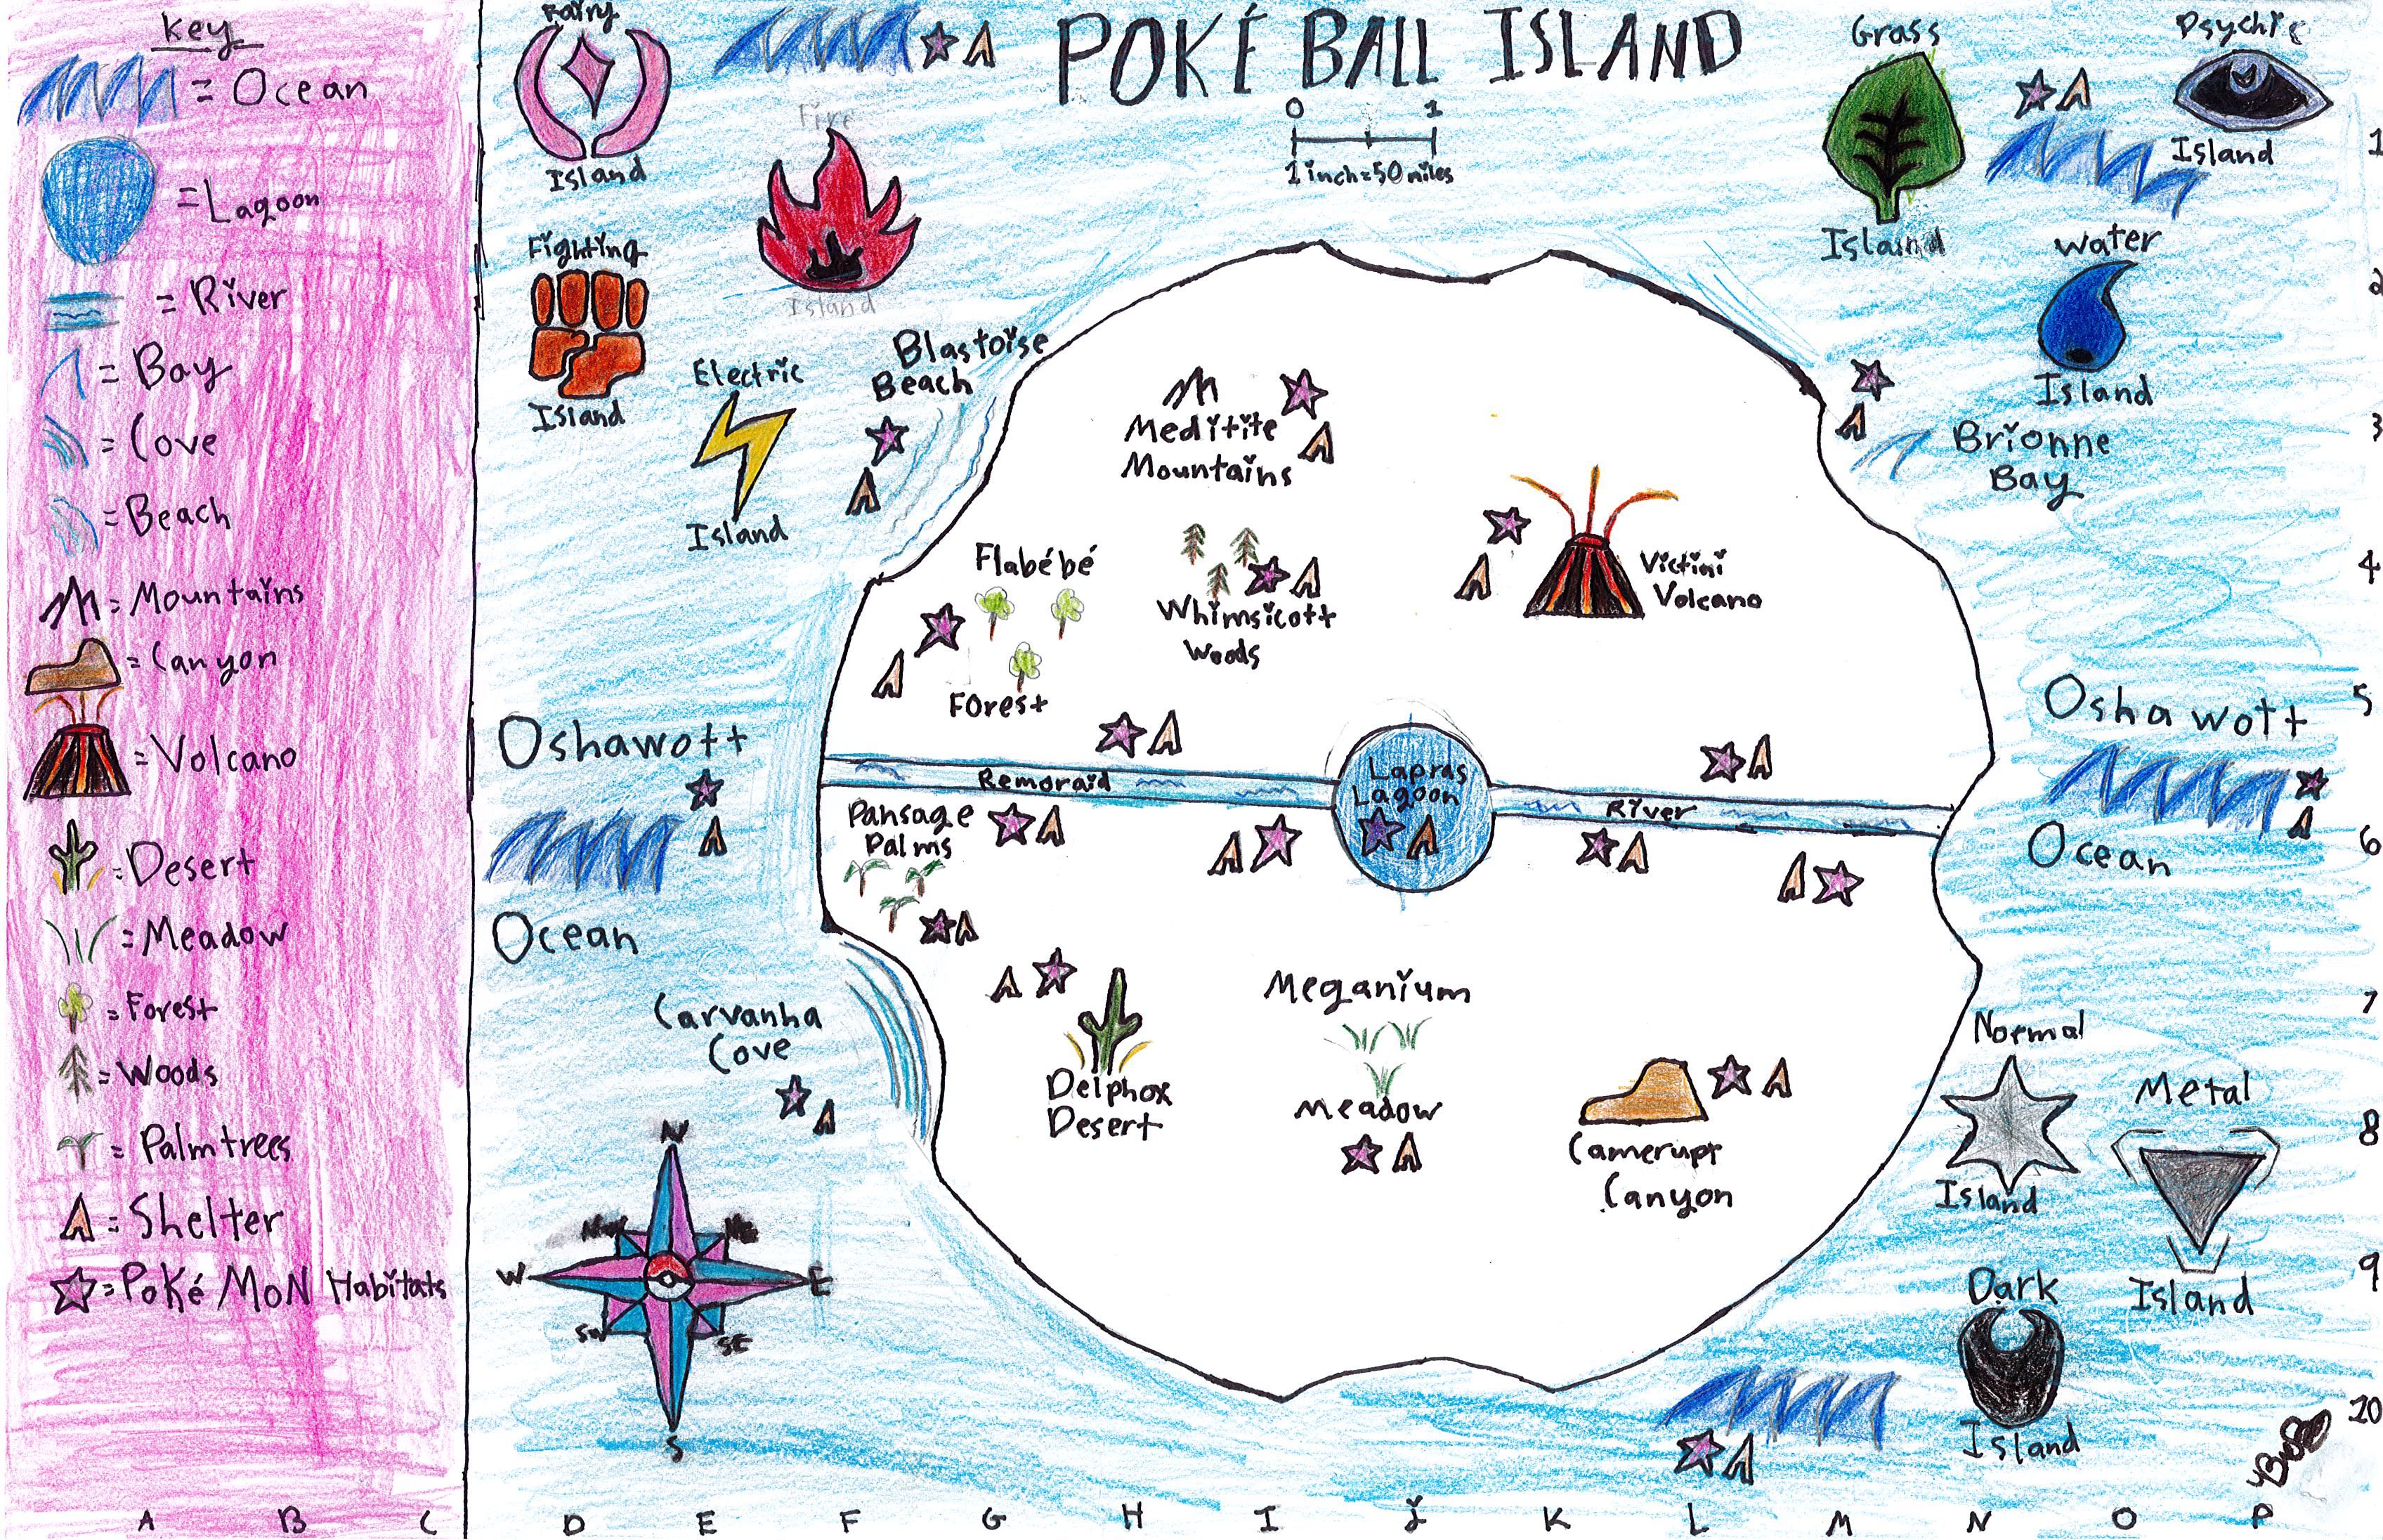 Key
= Ocean
= Lagoon
= River
= Bay
= Cove
= Beach
= Mountains
= Canyon
= Volcano
= Desert
= Meadow
= Forest
= Woods
= Palm trees
= Shelter
= PoKé MoN Habitats
POKÉ BALL ISLAND
0 1
1 inch = 50 miles
Fairy
Island
Fire
Island
Fighting
Island
Electric
Island
Blastoise
Beach
Grass
Island
Psychic
Island
Water
Island
Brionne
Bay
Meditite
Mountains
Flabébé
Forest
Whimsicott
Woods
Victini
Volcano
Oshawott
Ocean
Remoraid
River
Lapras
Lagoon
Pansage
Palms
Oshawott
Ocean
Carvanha
Cove
Delphox
Desert
Meganium
Meadow
Camerupt
Canyon
Normal
Island
Metal
Island
Dark
Island
N
NW
NE
W
E
SW
SE
S
1
2
3
4
5
6
7
8
9
10
A B C D E F G H I J K L M N O P